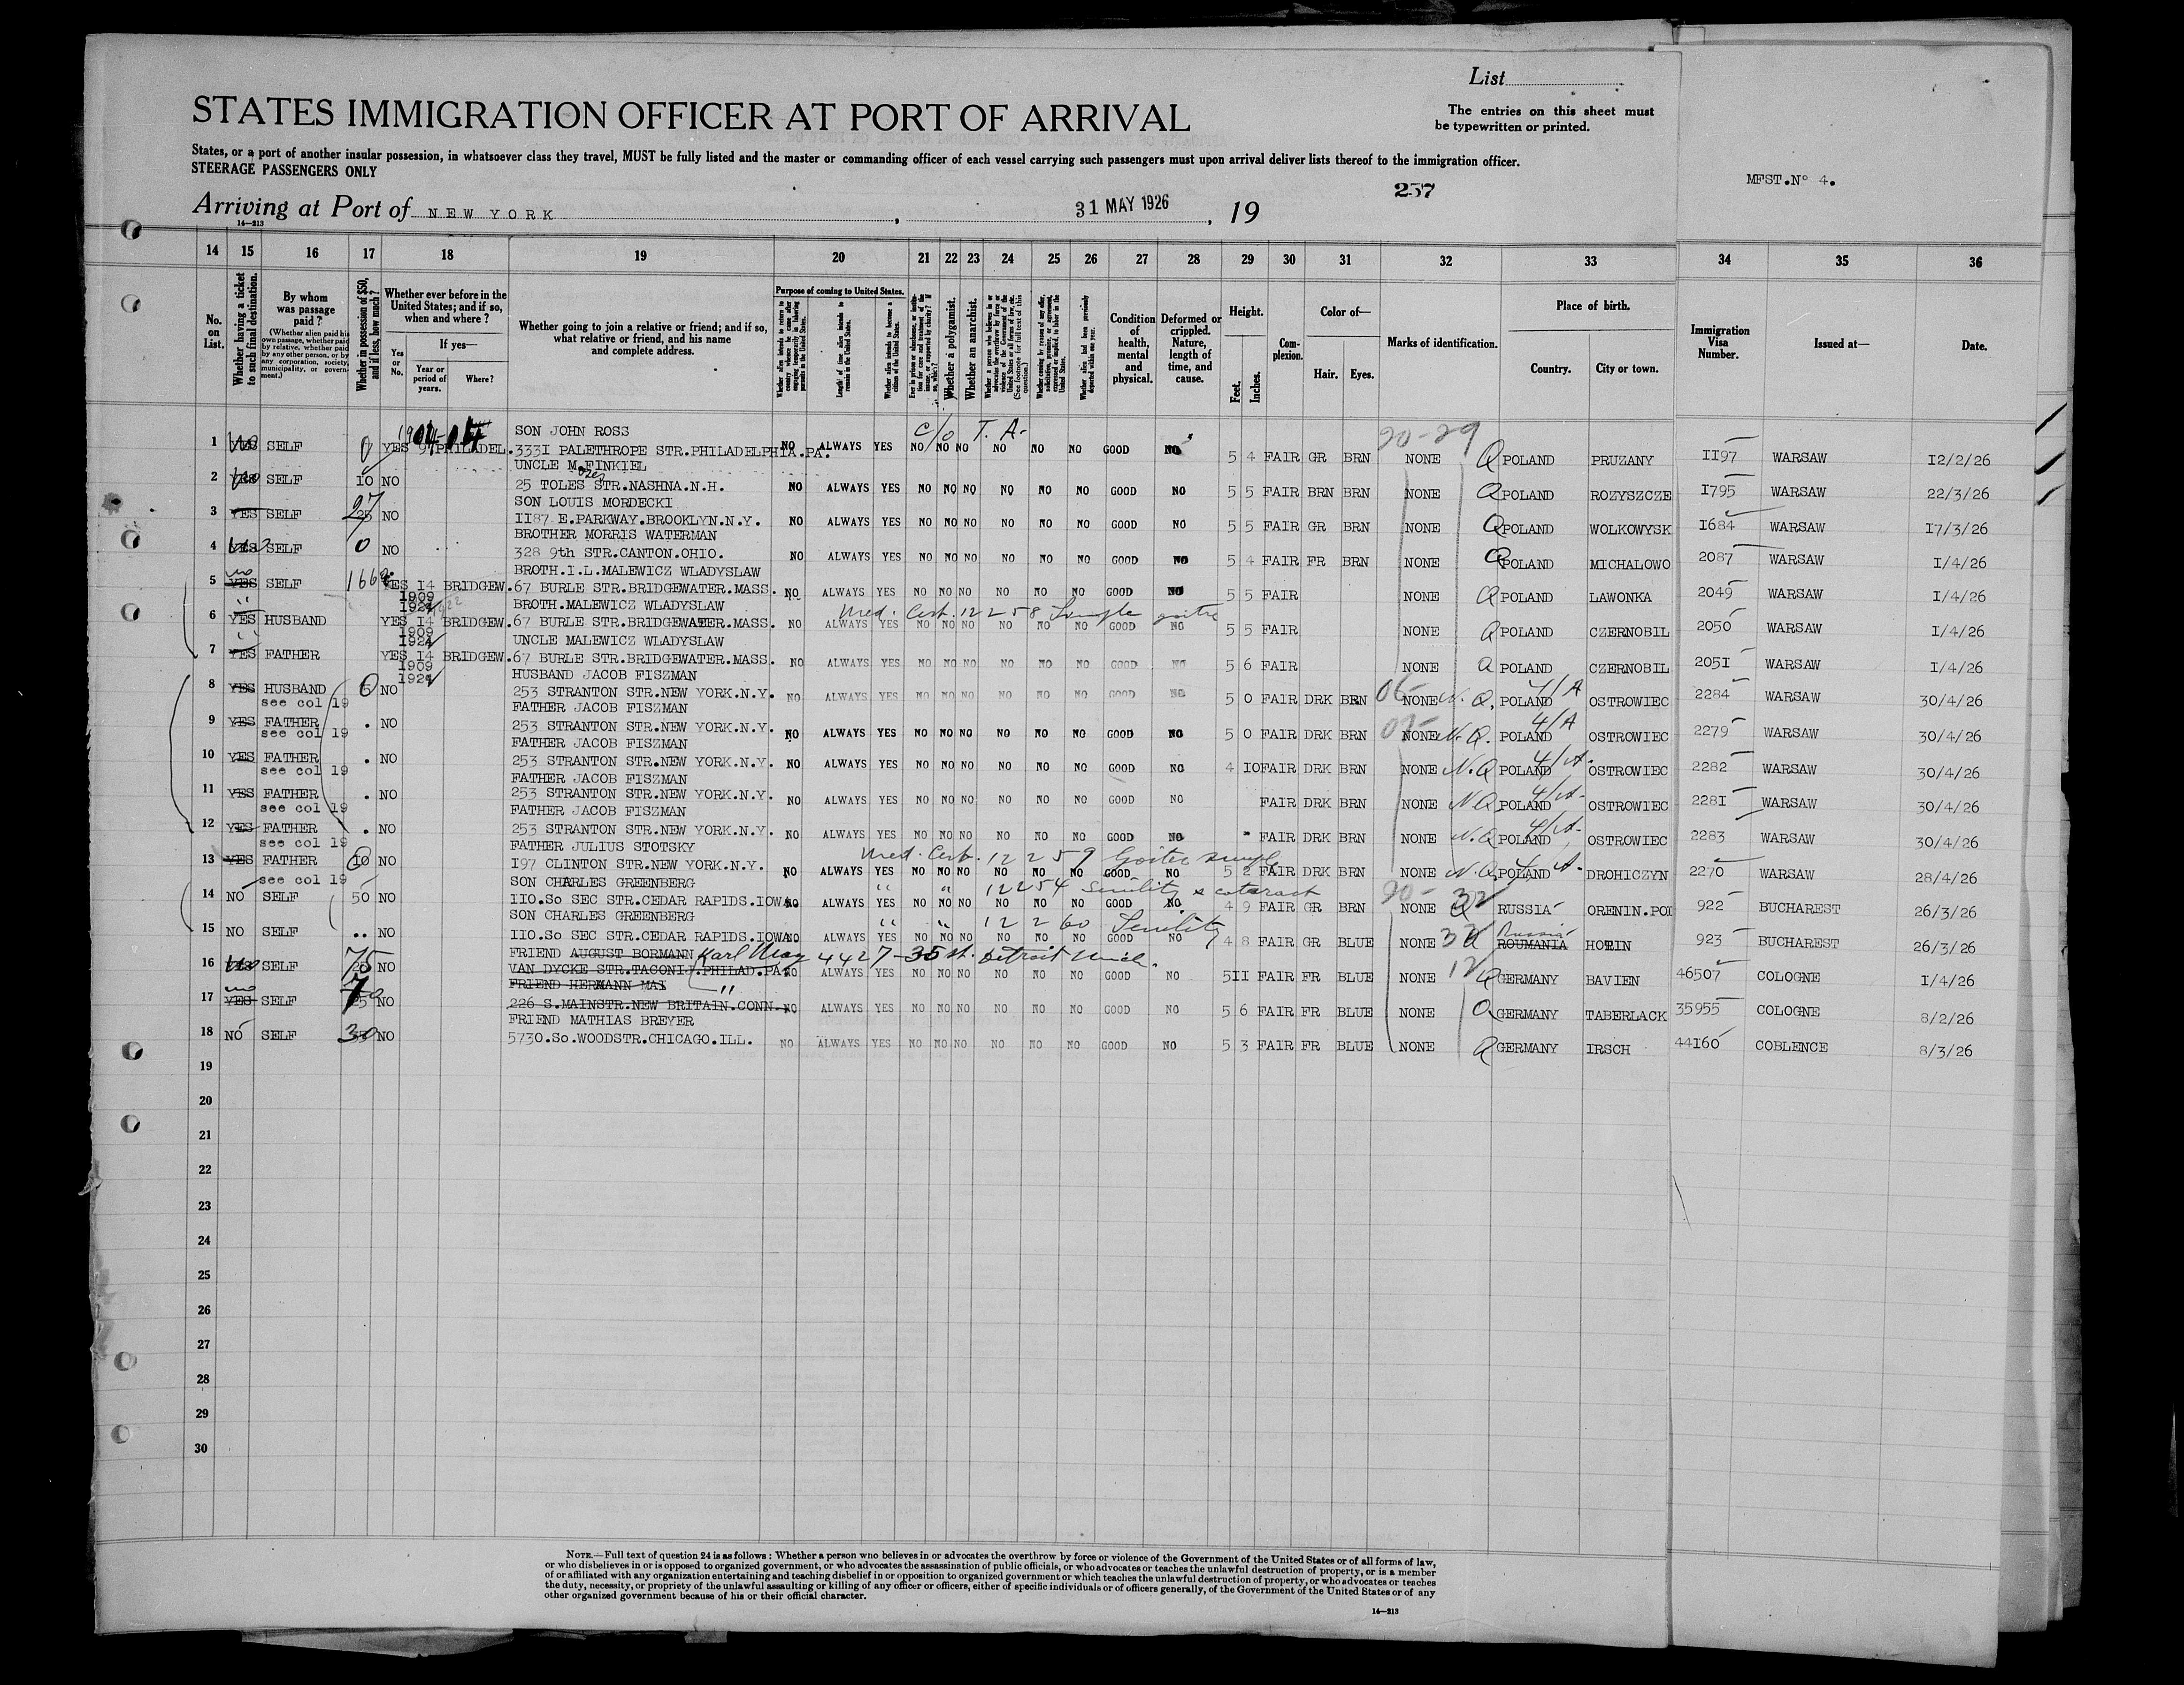 List
STATES IMMIGRATION OFFICER AT PORT OF ARRIVAL
The entries on this sheet must
be typewritten or printed.
States, or a port of another insular possession, in whatsoever class they travel, MUST be fully listed and the master or commanding officer of each vessel carrying such passengers must upon arrival deliver lists thereof to the immigration officer.
STEERAGE PASSENGERS ONLY
MFST.Nº 4.
257
Arriving at Port of NEW YORK, 31 MAY 1926, 19
14—213
14 15 16 17 18 19 20 21 22 23 24 25 26 27 28 29 30 31 32 33 34 35 36
No. on List.
Whether having a ticket to such final destination.
By whom was passage paid?
(Whether alien paid his own passage, whether paid by relative, whether paid by any other person, or by any corporation, society, municipality, or government.)
Whether in possession of $50, and if less, how much?
Whether ever before in the United States; and if so, when and where?
Yes or No.
If yes—
Year or period of years.
Where?
Whether going to join a relative or friend; and if so, what relative or friend, and his name and complete address.
Purpose of coming to United States.
Length of time alien intends to remain in the United States.
Whether alien intends to become a citizen of the United States.
Whether a polygamist.
Whether an anarchist.
Condition of health, mental and physical.
Deformed or crippled. Nature, length of time, and cause.
Height.
Feet.
Inches.
Complexion.
Color of—
Hair.
Eyes.
Marks of identification.
Place of birth.
Country.
City or town.
Immigration Visa Number.
Issued at—
Date.
SON JOHN ROSS c/o T. A. 20-29
1 YES no SELF 0 YES PHILADEL. 333I PALETHROPE STR.PHILADELPHIA.PA. NO ALWAYS YES NO NO NO NO NO NO GOOD NO 5 4 FAIR GR BRN NONE Q POLAND PRUZANY II97 WARSAW I2/2/26
UNCLE M.FINKIEL
2 YES no SELF IO NO 25 TOLES STR.NASHNA.N.H. NO ALWAYS YES NO NO NO NO NO NO GOOD NO 5 5 FAIR BRN BRN NONE Q POLAND ROZYSZCZE I795 WARSAW 22/3/26
SON LOUIS MORDECKI
3 YES SELF 27 25 NO II87 E.PARKWAY.BROOKLYN.N.Y. NO ALWAYS YES NO NO NO NO NO NO GOOD NO 5 5 FAIR GR BRN NONE Q POLAND WOLKOWYSK I684 WARSAW I7/3/26
BROTHER MORRIS WATERMAN
4 YES SELF 0 NO 328 9th STR.CANTON.OHIO. NO ALWAYS YES NO NO NO NO NO NO GOOD NO 5 4 FAIR FR BRN NONE Q POLAND MICHALOWO 2087 WARSAW I/4/26
BROTH.I.L.MALEWICZ WLADYSLAW
5 no YES SELF 166 YES I4 BRIDGEW. 67 BURLE STR.BRIDGEWATER.MASS. NO ALWAYS YES NO NO NO NO NO NO GOOD NO 5 5 FAIR NONE Q POLAND LAWONKA 2049 WARSAW I/4/26
1909
1921 BROTH.MALEWICZ WLADYSLAW Med. Cert. 12258 Simple goitre
6 " YES HUSBAND YES I4 BRIDGEW. 67 BURLE STR.BRIDGEWATER.MASS. NO ALWAYS YES NO NO NO NO NO NO GOOD NO 5 5 FAIR NONE Q POLAND CZERNOBIL 2050 WARSAW I/4/26
1909
1921 UNCLE MALEWICZ WLADYSLAW
7 " YES FATHER YES I4 BRIDGEW. 67 BURLE STR.BRIDGEWATER.MASS. NO ALWAYS YES NO NO NO NO NO NO GOOD NO 5 6 FAIR NONE Q POLAND CZERNOBIL 205I WARSAW I/4/26
1909
1921 HUSBAND JACOB FISZMAN
8 YES HUSBAND 0 NO 253 STRANTON STR.NEW YORK.N.Y. NO ALWAYS YES NO NO NO NO NO NO GOOD NO 5 0 FAIR DRK BRN 06- NONE N.Q. POLAND 4/A OSTROWIEC 2284 WARSAW 30/4/26
see col 19 FATHER JACOB FISZMAN
9 YES FATHER . NO 253 STRANTON STR.NEW YORK.N.Y. NO ALWAYS YES NO NO NO NO NO NO GOOD NO 5 0 FAIR DRK BRN NONE N.Q. POLAND 4/A OSTROWIEC 2279 WARSAW 30/4/26
see col 19 FATHER JACOB FISZMAN
10 YES FATHER . NO 253 STRANTON STR.NEW YORK.N.Y. NO ALWAYS YES NO NO NO NO NO NO GOOD NO 4 IO FAIR DRK BRN NONE N.Q POLAND 4/A OSTROWIEC 2282 WARSAW 30/4/26
see col 19 FATHER JACOB FISZMAN
11 YES FATHER . NO 253 STRANTON STR.NEW YORK.N.Y. NO ALWAYS YES NO NO NO NO NO NO GOOD NO FAIR DRK BRN NONE N.Q POLAND 4/A OSTROWIEC 228I WARSAW 30/4/26
see col 19 FATHER JACOB FISZMAN
12 YES FATHER . NO 253 STRANTON STR.NEW YORK.N.Y. NO ALWAYS YES NO NO NO NO NO NO GOOD NO FAIR DRK BRN NONE N.Q POLAND 4/A OSTROWIEC 2283 WARSAW 30/4/26
see col 19 FATHER JULIUS STOTSKY Med. Cert. 12259 Goitre simple
13 YES FATHER IO NO I97 CLINTON STR.NEW YORK.N.Y. NO ALWAYS YES NO NO NO NO NO NO GOOD NO 5 2 FAIR DRK BRN NONE N.Q. POLAND 4/A DROHICZYN 2270 WARSAW 28/4/26
see col 19 SON CHARLES GREENBERG " " 12254 Senility & cataract 90- 32
14 NO SELF 50 NO IIO.So SEC STR.CEDAR RAPIDS.IOWA NO ALWAYS YES NO NO NO NO NO NO GOOD NO 4 9 FAIR GR BRN NONE Q RUSSIA ORENIN.POD 922 BUCHAREST 26/3/26
SON CHARLES GREENBERG " " 12260 Senility
15 NO SELF .. NO IIO.So SEC STR.CEDAR RAPIDS.IOWA NO ALWAYS YES NO NO NO NO NO NO GOOD NO 4 8 FAIR GR BLUE NONE 32 Russia ROUMANIA HOTIN 923 BUCHAREST 26/3/26
FRIEND AUGUST BORMANN Karl May 4427-35 st. Detroit Mich.
16 YES no SELF 75 NO VAN DYCKE STR.TACONIJ.PHILAD.PA. NO ALWAYS YES NO NO NO NO NO NO GOOD NO 5 II FAIR FR BLUE NONE 12 Q GERMANY BAVIEN 46507 COLOGNE I/4/26
FRIEND HERMANN MAY "
17 no YES SELF 70 NO 226 S.MAINSTR.NEW BRITAIN.CONN. NO ALWAYS YES NO NO NO NO NO NO GOOD NO 5 6 FAIR FR BLUE NONE Q GERMANY TABERLACK 35955 COLOGNE 8/2/26
FRIEND MATHIAS BREYER
18 NO SELF 30 NO 5730.So.WOODSTR.CHICAGO.ILL. NO ALWAYS YES NO NO NO NO NO NO GOOD NO 5 3 FAIR FR BLUE NONE Q GERMANY IRSCH 44I60 COBLENCE 8/3/26
19
20
21
22
23
24
25
26
27
28
29
30
NOTE.—Full text of question 24 is as follows: Whether a person who believes in or advocates the overthrow by force or violence of the Government of the United States or of all forms of law,
or who disbelieves in or is opposed to organized government, or who advocates the assassination of public officials, or who advocates or teaches the unlawful destruction of property, or is a member
of or affiliated with any organization entertaining and teaching disbelief in or opposition to organized government or which teaches the unlawful destruction of property, or who advocates or teaches
the duty, necessity, or propriety of the unlawful assaulting or killing of any officer or officers, either of specific individuals or of officers generally, of the Government of the United States or of any
other organized government because of his or their official character.
14—213